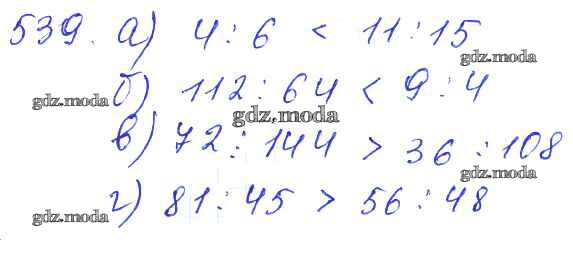 539. а) 4 : 6 < 11 : 15
gdz.moda
б) 112 : 64 < 9 : 4
gdz.moda
gdz.moda
в) 72 : 144 > 36 : 108
gdz.moda
г) 81 : 45 > 56 : 48
gdz.moda